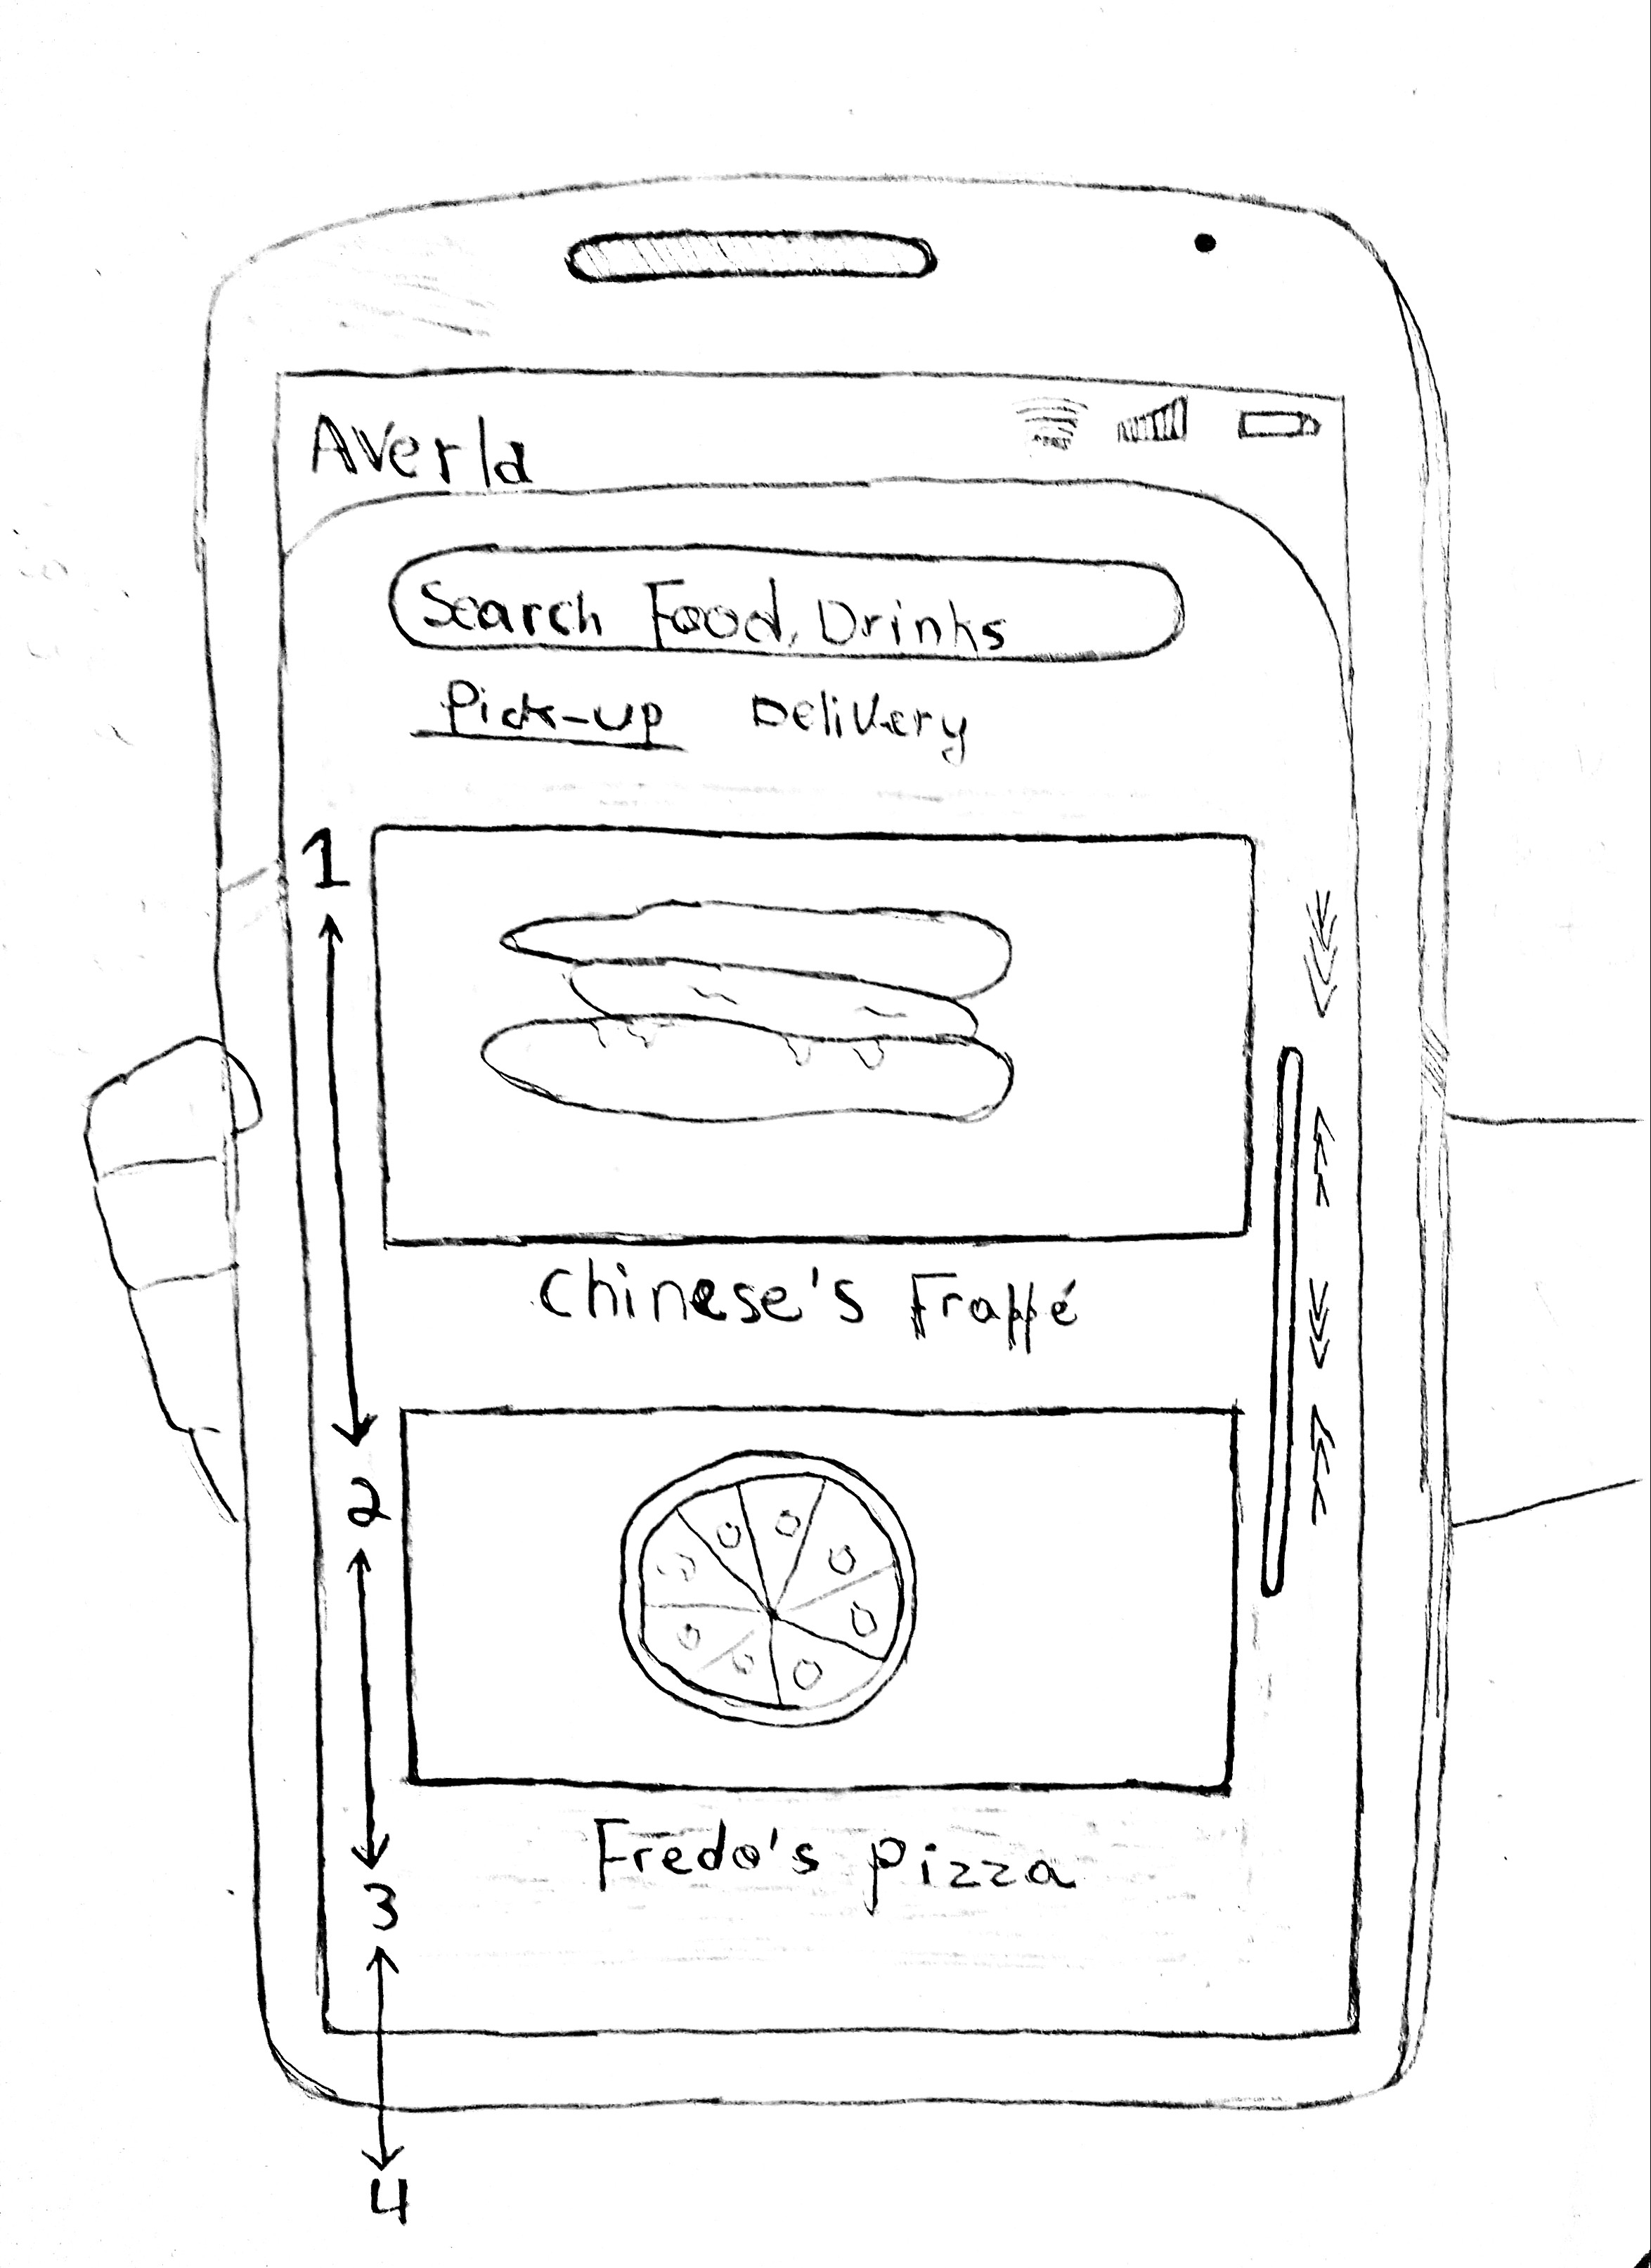 Averla
Search Food, Drinks
Pick-up Delivery
1
Chinese's Frappé
2
Fredo's Pizza
3
4